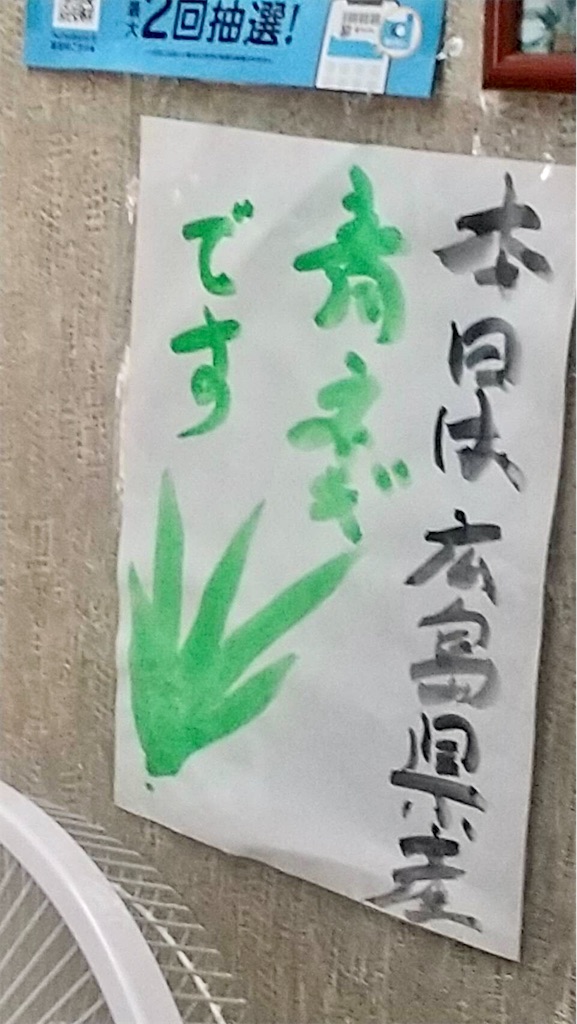 最大2回抽選!
本日は広島県産
青ネギ
です